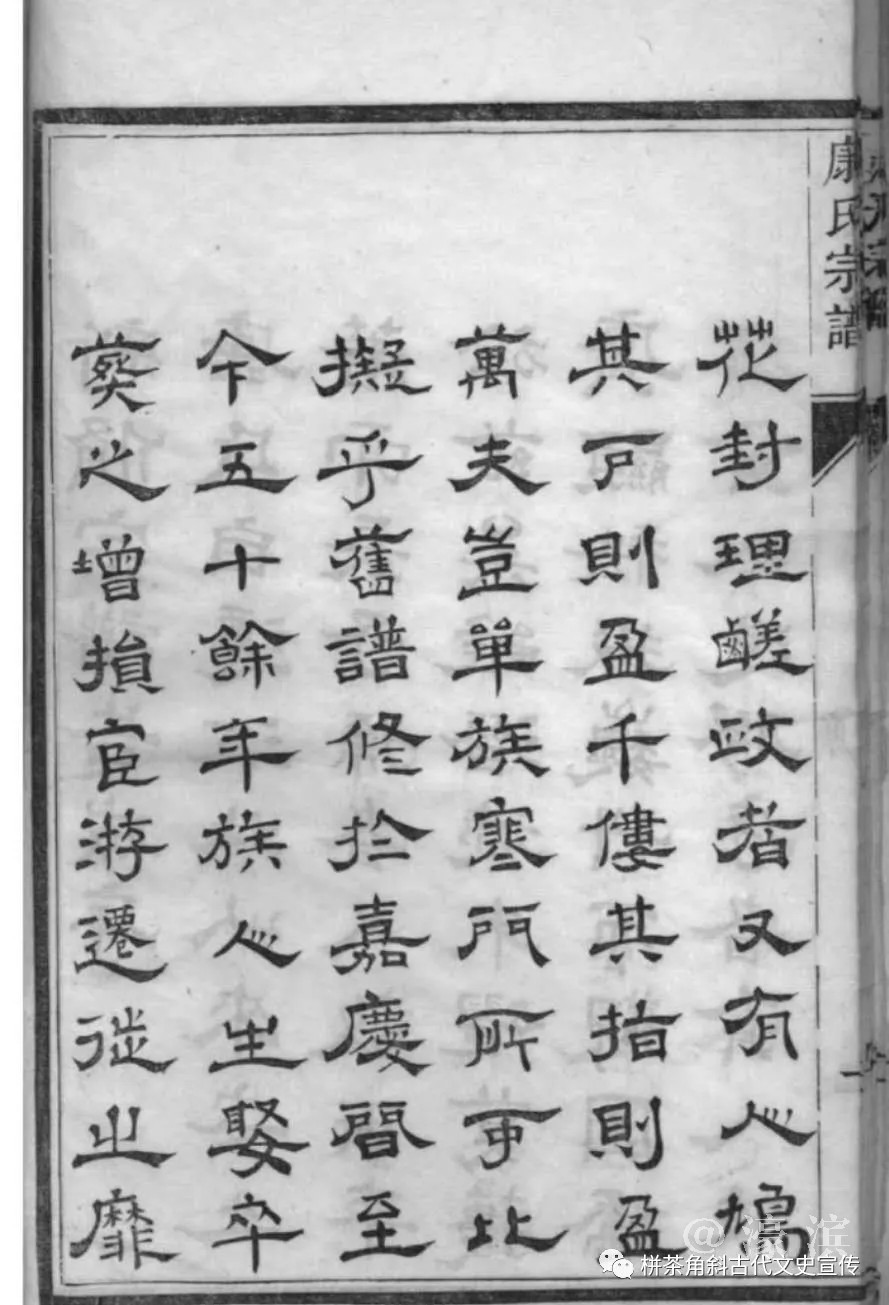 康氏宗譜
花封理鹺政者又有人鳩
其戶則盈千僂其指則盈
萬夫豈單族寒門所可比
擬乎舊譜修於嘉慶間至
今五十餘年族人生娶卒
葬之增損宦游遷徙之靡
@濠滨
栟茶角斜古代文史宣传